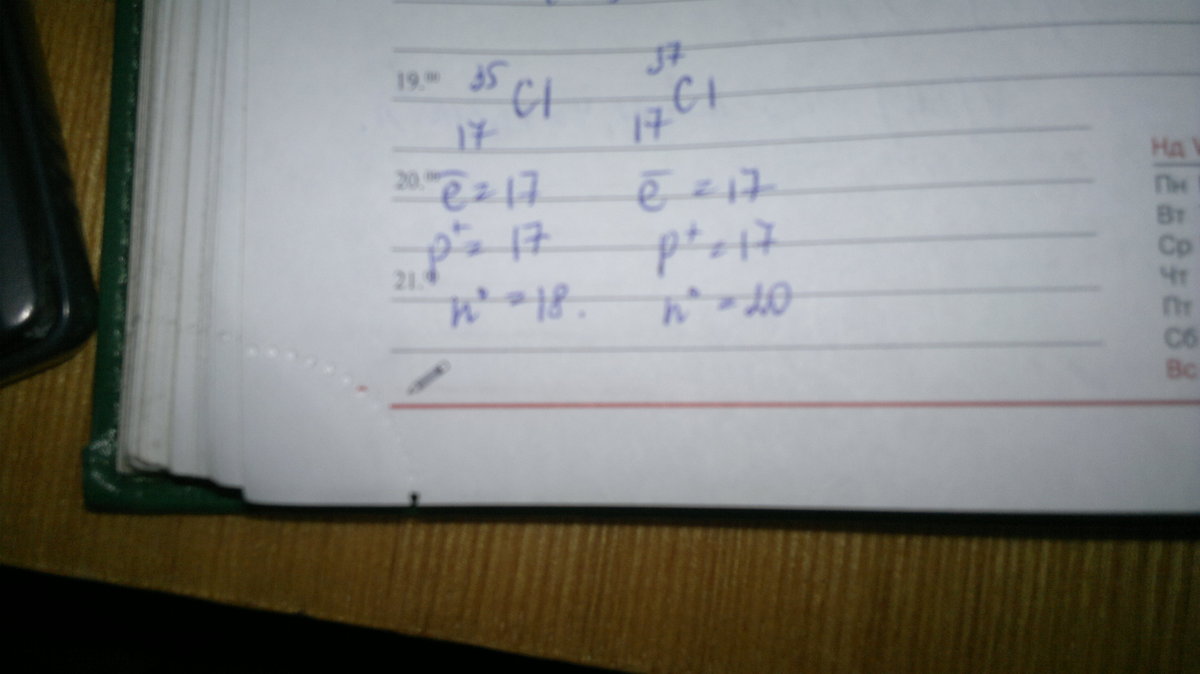 19.⁰⁰ ³⁵₁₇Cl ³⁷₁₇Cl
20.⁰⁰ e̅ = 17 e̅ = 17
p⁺ = 17 p⁺ = 17
21.
n⁰ = 18. n⁰ = 20
Нд
Пн
Вт
Ср
Чт
Пт
Сб
Вс